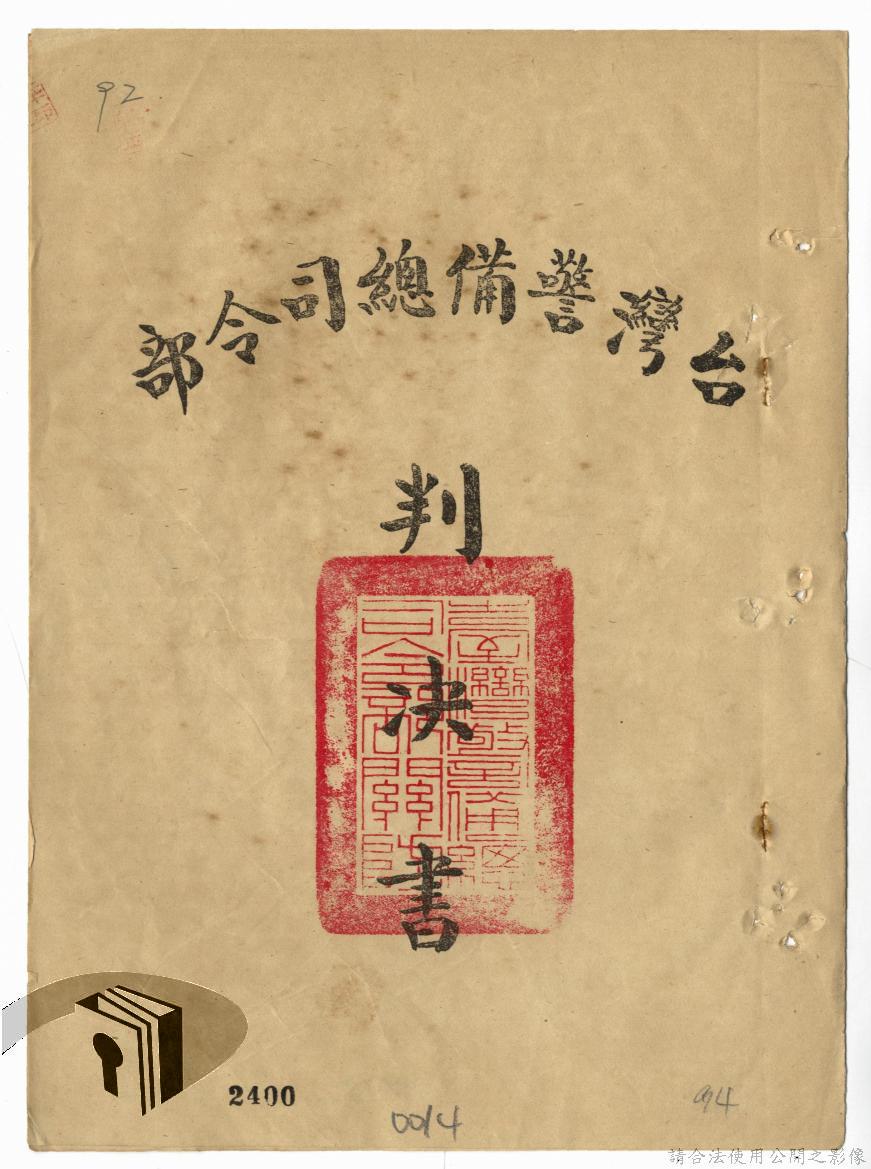 92
台灣警備總司令部
判
決
書
2400
0014
請合法使用公開之影像